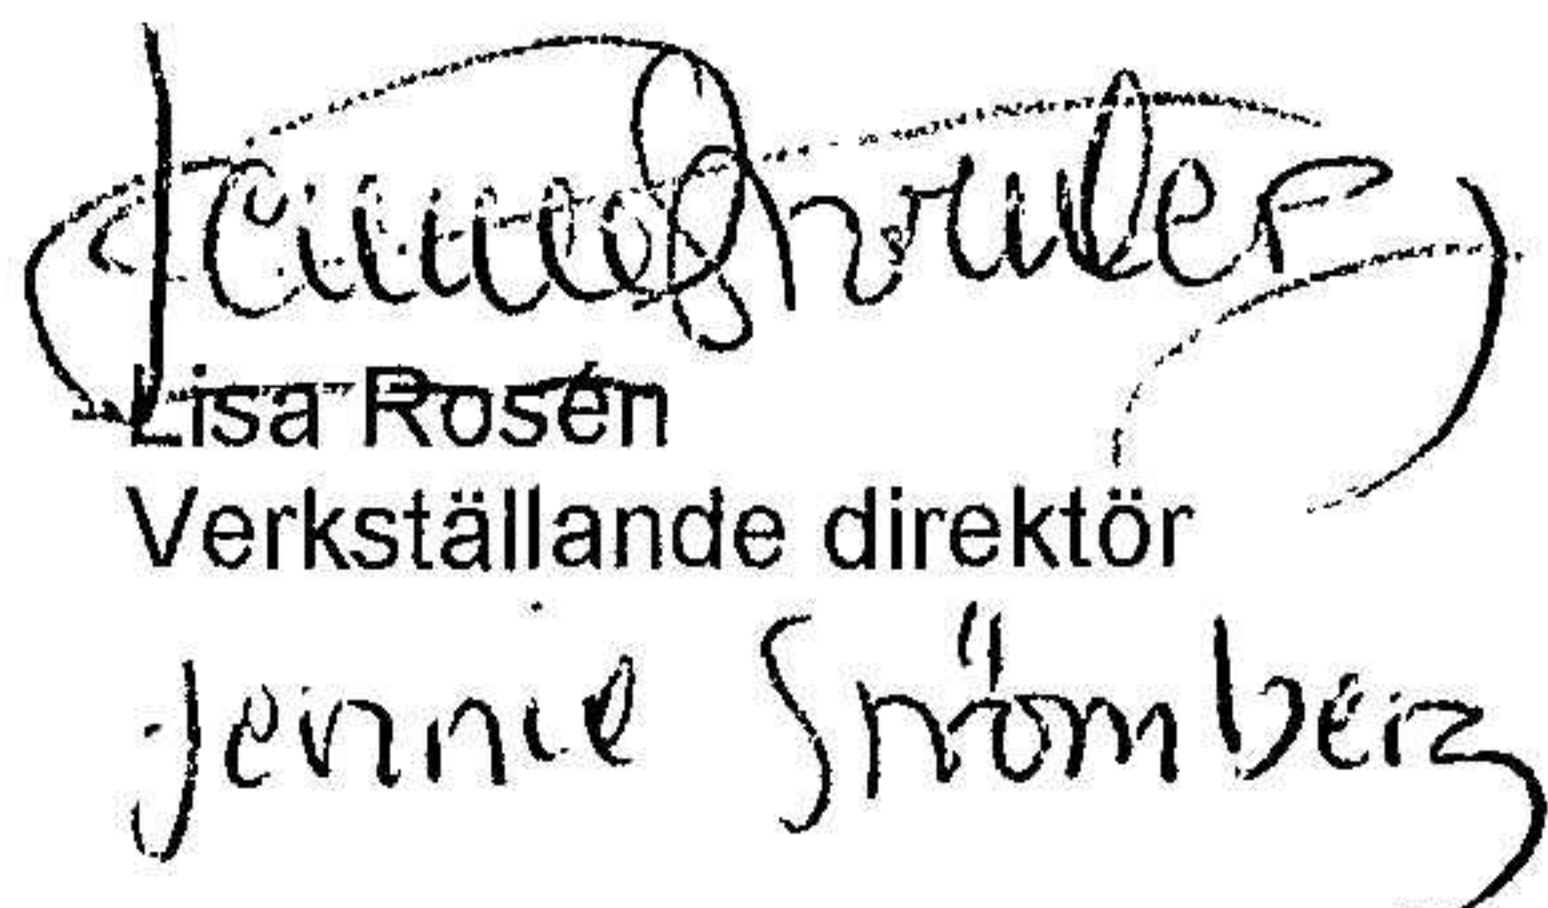 Jennie Strömberg
Lisa Rosén
Verkställande direktör
Jennie Strömberg